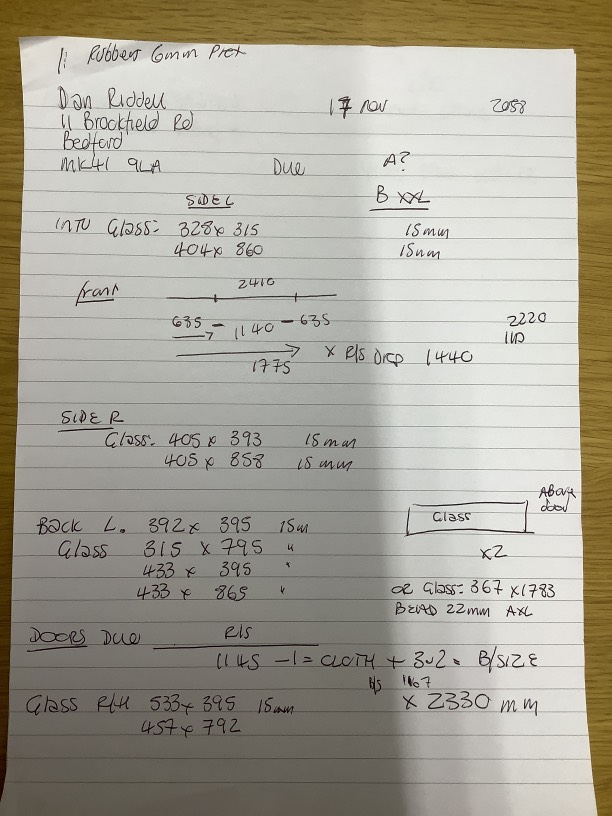 11 Rubbers 6mm Prex
Dan Riddell 17 nov 2058
11 Brookfield Rd
Bedford
MK41 9LA Due A?
SIDE L B XXL
INTU Glass: 328 x 315 15mm
404 x 860 15mm
front 2410
635 - 1140 - 635 2220
1110
1775 x R/S DROP 1440
SIDE R
Glass: 405 x 393 15mm
405 x 858 15mm
Above
door
Glass
Back L. 392 x 395 15m
Glass 315 x 795 "
x2
433 x 395 "
433 x 865 " OR Glass: 367 x 1783
BEAD 22mm AXL
DOORS DUE R/S
1145 - 1 = CLOTH + 302 = B/SIZE
B/S 1167
Glass R/H 533 x 395 15mm x 2330 mm
457 x 792